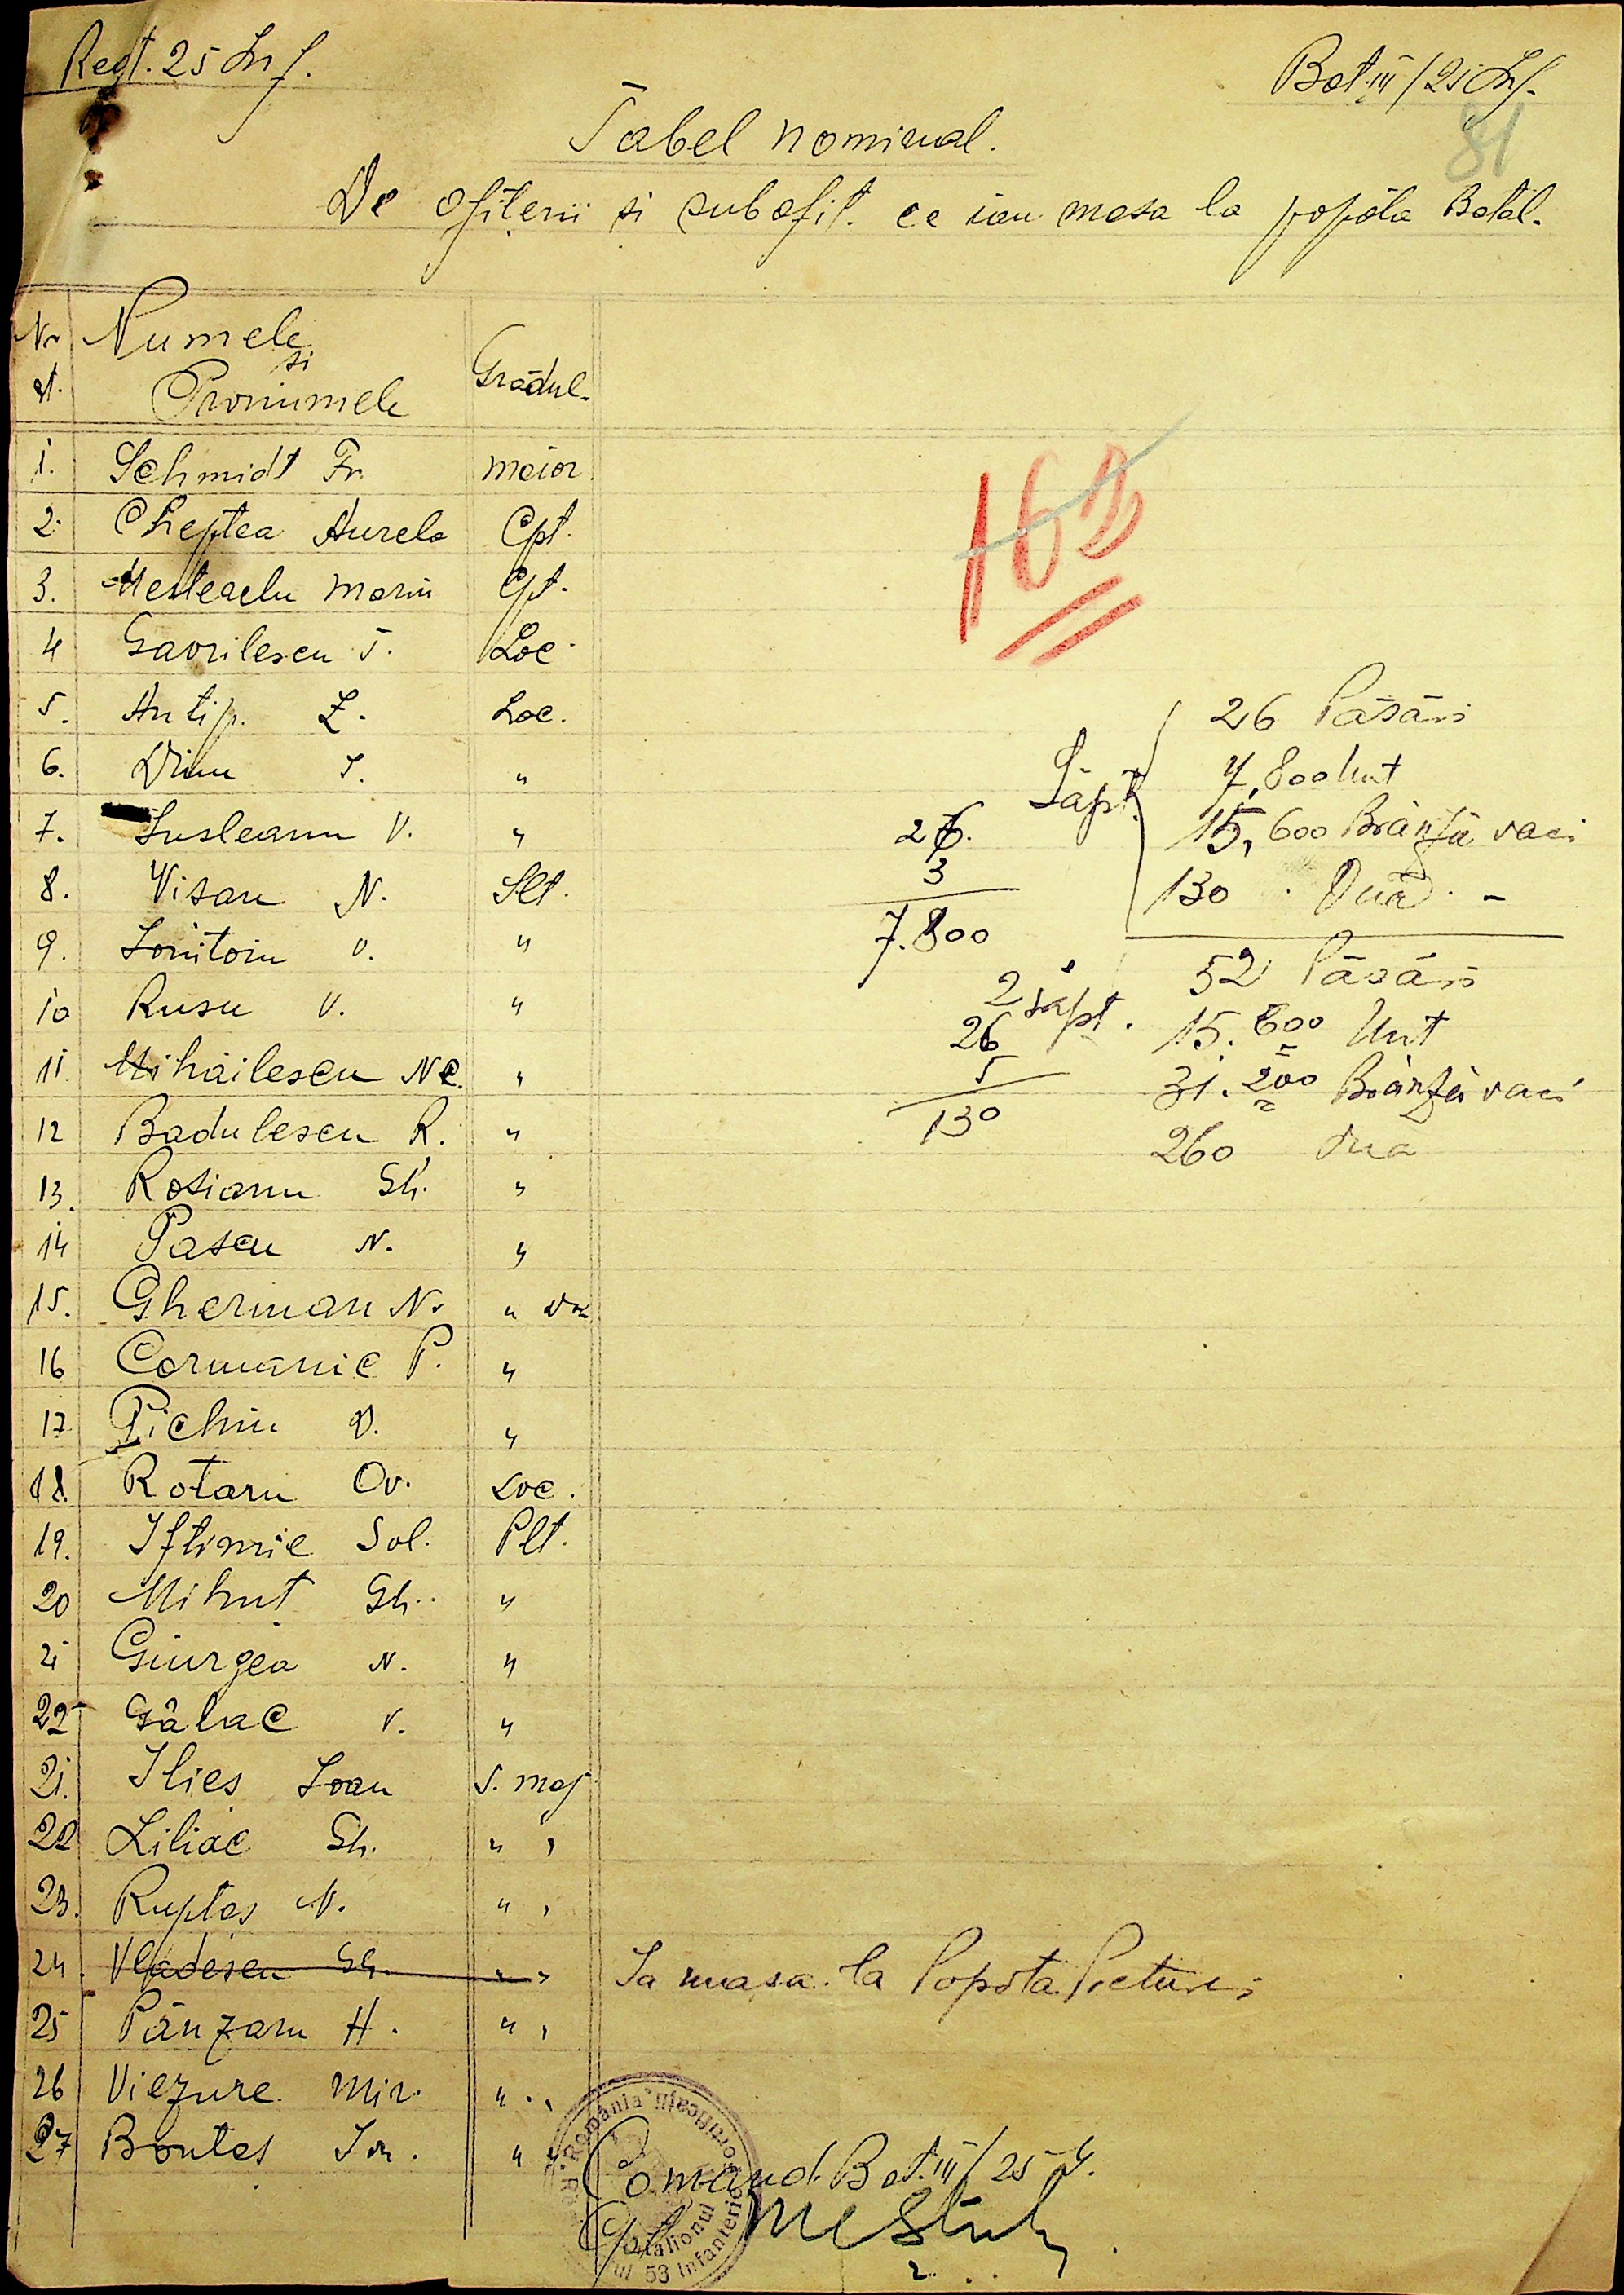 Regt. 25 Inf.
Bat. III / 25 Inf.
81
Tabel nominal.
De ofiteri si subofit. ce iau masa la popota Batal.
Nr Numele si Gradul.
ct. Pronumele
1. Schmidt Fr. maior
2. Cheptea Aurela Cpt.
3. Mesteaelu Marin Cpt.
4 Gavrilescu T. Loc.
5. Antip. Z. Loc.
6. Dinu I. "
7. Susleanu V. "
8. Visan N. Slt.
9. Ionitoiu V. "
10 Rusu V. "
11 Mihăilescu Nc. "
12 Badulescu R. "
13. Rosianu Gh. "
14 Pascu N. "
15. Gherman N. "
16 Cormanic P. "
17 Pichiu D. "
18. Rotaru Ov. Loc.
19. Iftimie Sol. Plt.
20 Mihut Gh. "
21 Giurgea N. "
22 Gălac V. "
21. Ilies Ioan S. maj.
22 Liliac Gh. " "
23. Ruptas N. " "
24. Vladescu Gh. " " Ia masa la Popota
25 Pânzaru H. " "
26 Viezure Mir. " "
27 Bontas Ion. " "
163
Săpt.
26 Păsări
7,800 Unt
15,600 Brânză vaci
130 Ouă -
26.
3
7.800
2 săpt.
52 Păsări
15.600 Unt
31.200 Brânză vaci
260 Ouă
26
5
130
Comand. Bat. III / 25 If.
Cpt.
România
Fortificații
Batalionul
53 Infanterie